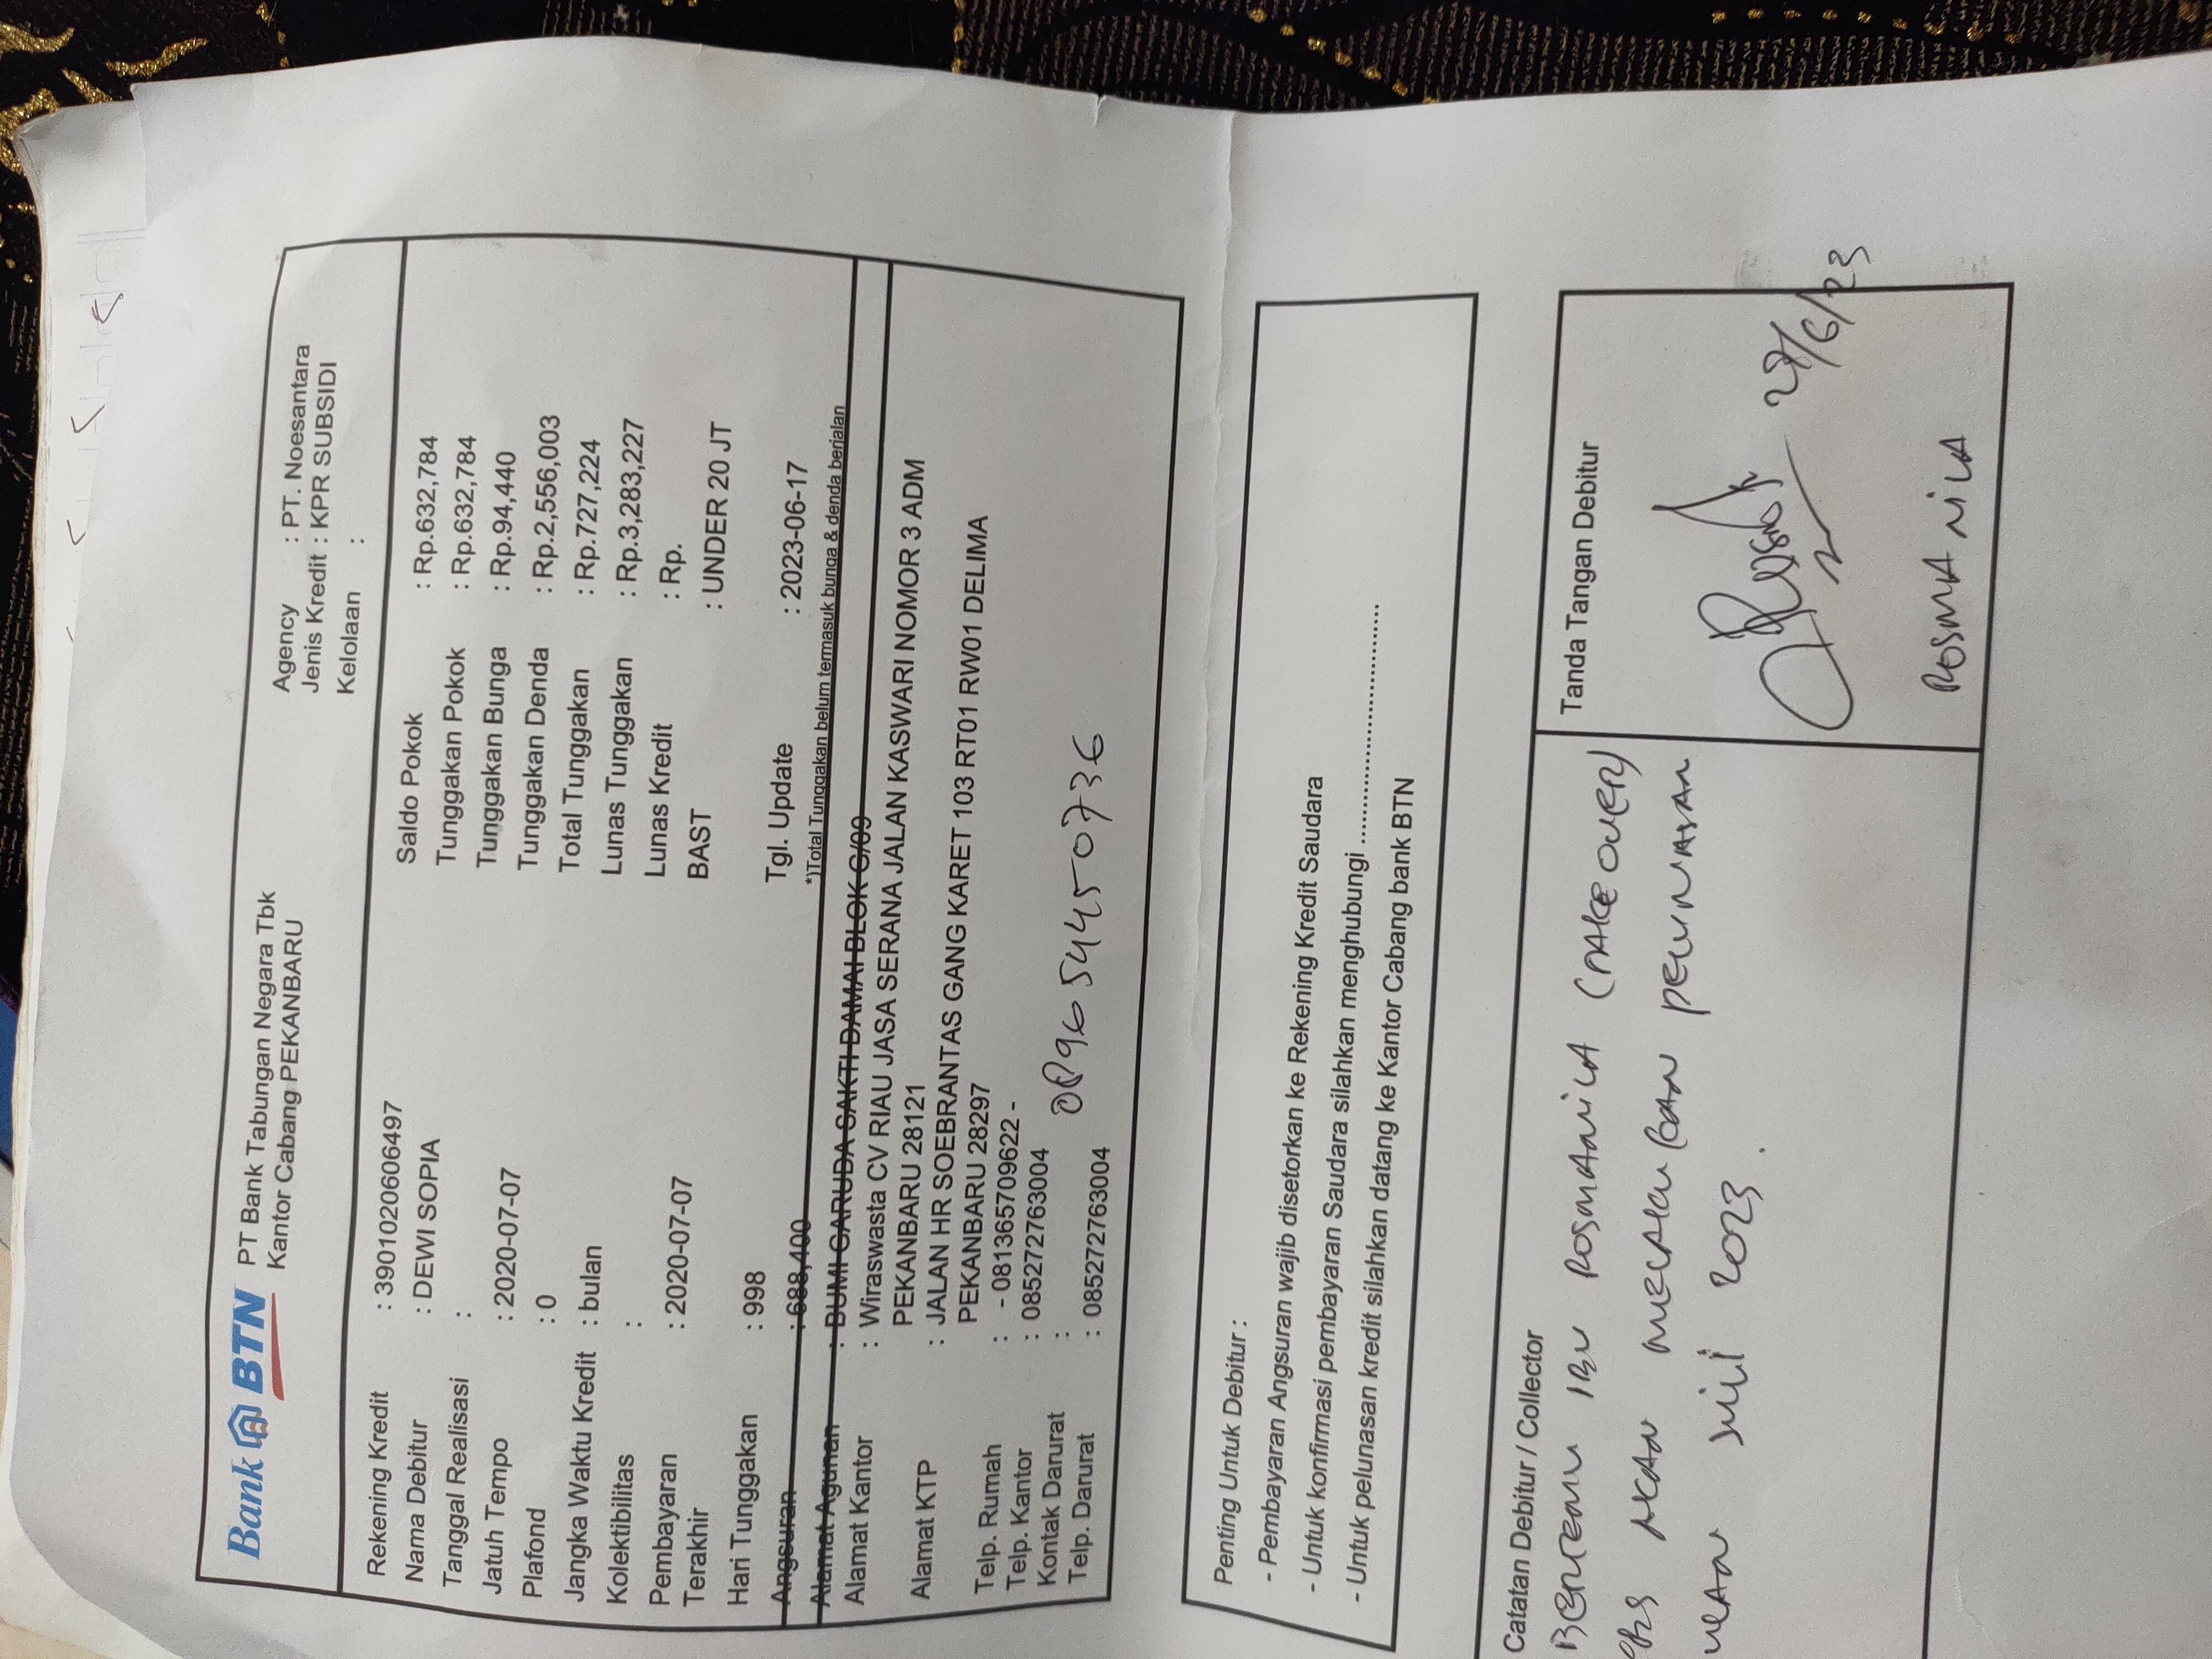 Bank BTN PT Bank Tabungan Negara Tbk
Kantor Cabang PEKANBARU
Agency : PT. Noesantara
Jenis Kredit : KPR SUBSIDI
Kelolaan :
Rekening Kredit : 3901020606497
Nama Debitur : DEWI SOPIA
Tanggal Realisasi :
Jatuh Tempo : 2020-07-07
Plafond : 0
Jangka Waktu Kredit : bulan
Kolektibilitas :
Pembayaran : 2020-07-07
Terakhir
Hari Tunggakan : 998
Angsuran : 688,400
Saldo Pokok : Rp.632,784
Tunggakan Pokok : Rp.632,784
Tunggakan Bunga : Rp.94,440
Tunggakan Denda : Rp.2,556,003
Total Tunggakan : Rp.727,224
Lunas Tunggakan : Rp.3,283,227
Lunas Kredit : Rp.
BAST : UNDER 20 JT
Tgl. Update : 2023-06-17
*)Total Tunggakan belum termasuk bunga & denda berjalan
Alamat Agunan : BUMI GARUDA SAKTI DAMAI BLOK G/09
Alamat Kantor : Wiraswasta CV RIAU JASA SERANA JALAN KASWARI NOMOR 3 ADM
PEKANBARU 28121
Alamat KTP : JALAN HR SOEBRANTAS GANG KARET 103 RT01 RW01 DELIMA
PEKANBARU 28297
Telp. Rumah : - 081365709622 -
Telp. Kantor : 085272763004
Kontak Darurat :
Telp. Darurat : 085272763004
Penting Untuk Debitur :
- Pembayaran Angsuran wajib disetorkan ke Rekening Kredit Saudara
- Untuk konfirmasi pembayaran Saudara silahkan menghubungi ................................
- Untuk pelunasan kredit silahkan datang ke Kantor Cabang bank BTN
Catatan Debitur / Collector
BERTEMU IBU ROSMANILA (TAKE OVER)
AKAN MELAKUKAN PELUNASAN
JULI 2023.
Tanda Tangan Debitur
27/6/23
ROSMANILA